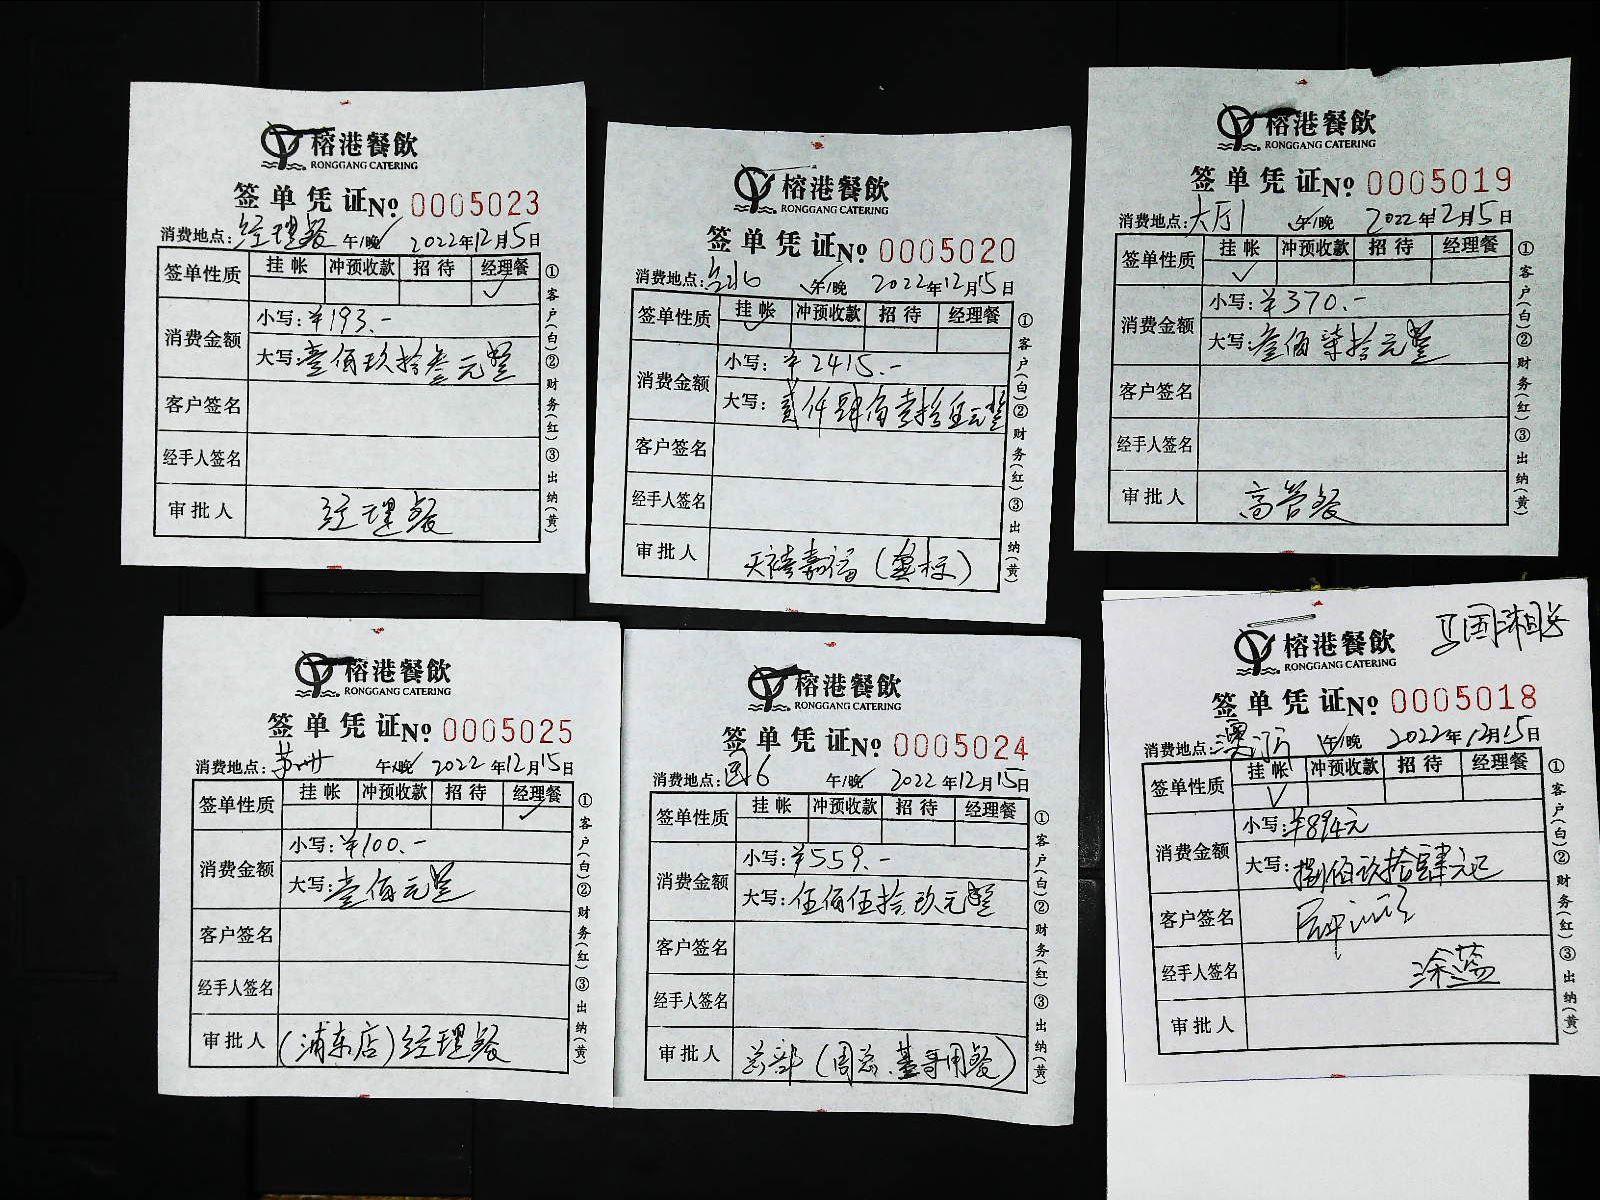 榕港餐飲
RONGGANG CATERING
签单凭证 № 0005023
消费地点：经理餐 午/晚✓ 2022年12月15日
签单性质 挂帐 冲预收款 招待 经理餐
✓
消费金额 小写：¥193.-
大写：壹佰玖拾叁元整
客户签名
经手人签名
审批人 经理餐
①客户(白)②财务(红)③出纳(黄)
榕港餐飲
RONGGANG CATERING
签单凭证 № 0005020
消费地点： 午/晚 2022年12月15日
签单性质 挂帐 冲预收款 招待 经理餐
✓
消费金额 小写：¥2415.-
大写：贰仟肆佰壹拾伍元整
客户签名
经手人签名
审批人 天禧嘉福
①客户(白)②财务(红)③出纳(黄)
榕港餐飲
RONGGANG CATERING
签单凭证 № 0005019
消费地点：大厅1 午/晚 2022年12月15日
签单性质 挂帐 冲预收款 招待 经理餐
✓
消费金额 小写：¥370.-
大写：叁佰柒拾元整
客户签名
经手人签名
审批人 高管餐
①客户(白)②财务(红)③出纳(黄)
榕港餐飲
RONGGANG CATERING
签单凭证 № 0005025
消费地点：苏州 午/晚✓ 2022年12月15日
签单性质 挂帐 冲预收款 招待 经理餐
✓
消费金额 小写：¥100.-
大写：壹佰元整
客户签名
经手人签名
审批人 (浦东店)经理餐
①客户(白)②财务(红)③出纳(黄)
榕港餐飲
RONGGANG CATERING
签单凭证 № 0005024
消费地点：园6 午/晚✓ 2022年12月15日
签单性质 挂帐 冲预收款 招待 经理餐
消费金额 小写：¥559.-
大写：伍佰伍拾玖元整
客户签名
经手人签名
审批人 总部(周总、基哥用餐)
①客户(白)②财务(红)③出纳(黄)
榕港餐飲
RONGGANG CATERING
签单凭证 № 0005018
消费地点： 午/晚 2022年12月15日
签单性质 挂帐 冲预收款 招待 经理餐
✓
消费金额 小写：¥894元
大写：捌佰玖拾肆元
客户签名
经手人签名 涂蕴
审批人
①客户(白)②财务(红)③出纳(黄)